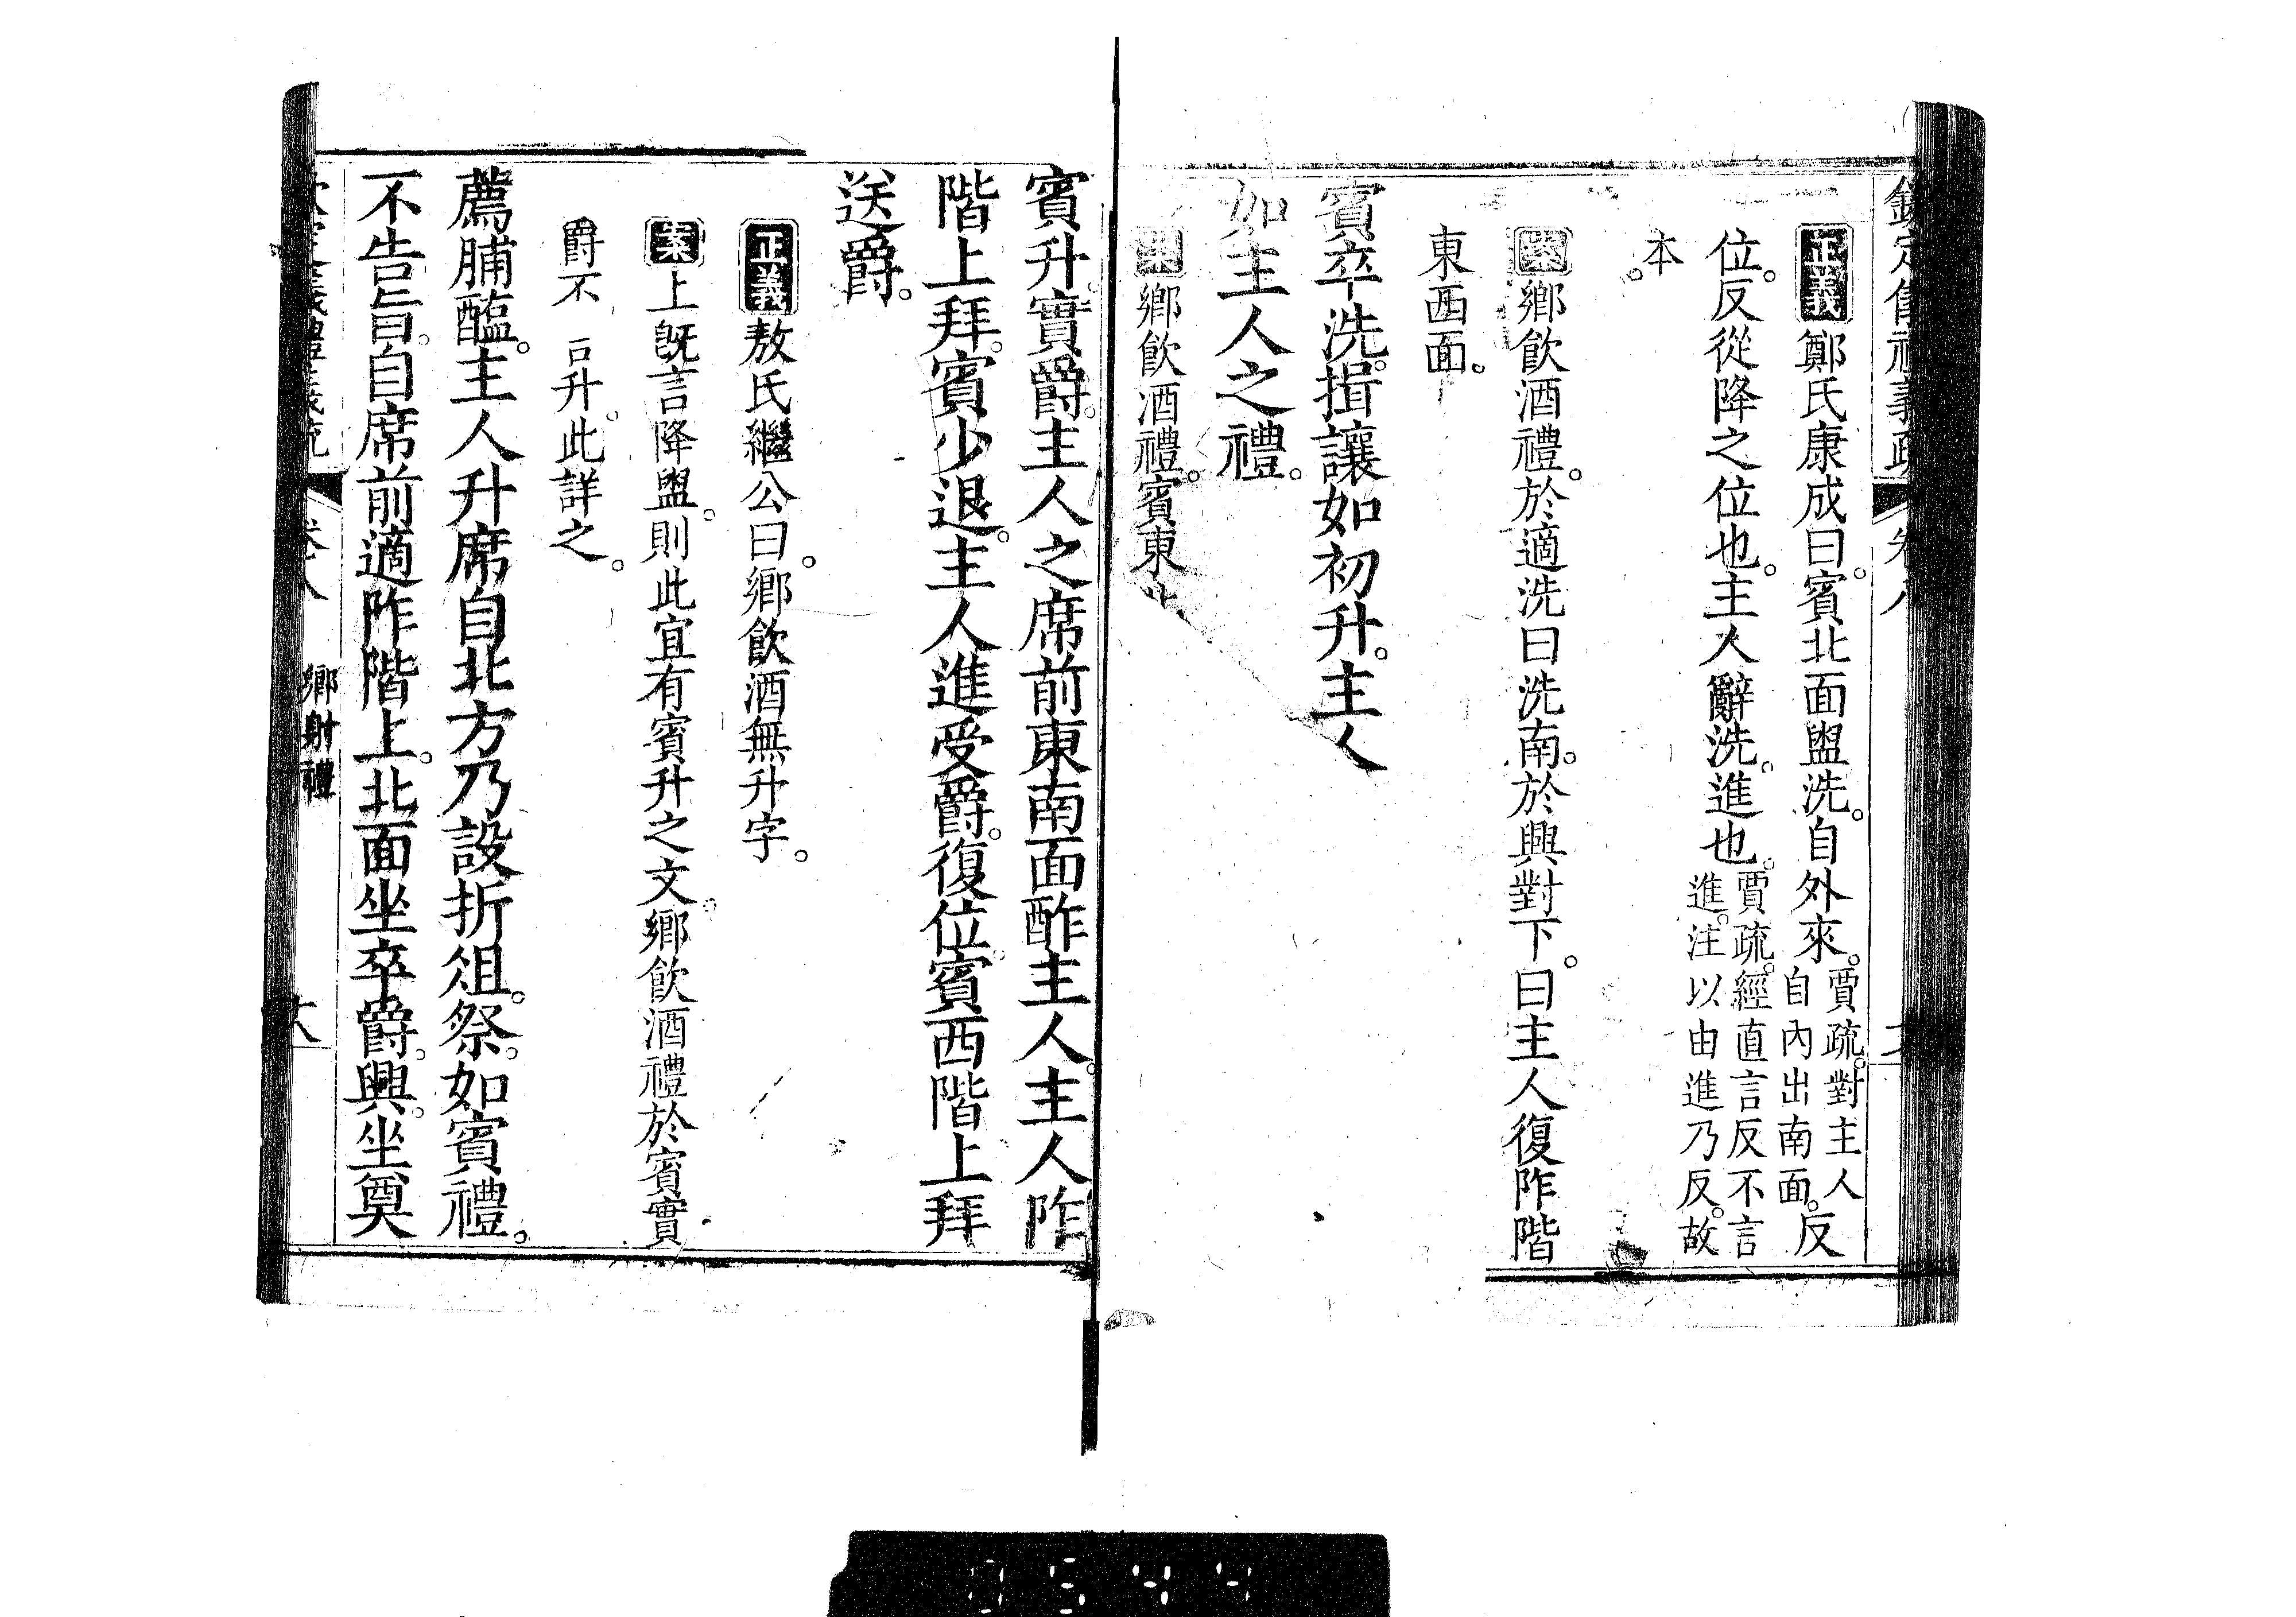 正義鄭氏康成曰。賓北面盥洗。自外來。賈疏。對主人自內出南面。反
位。反從降之位也。主人辭洗。進也。賈疏。經直言反不言進。注以由進乃反。故
本。
案鄉飲酒禮。於適洗曰洗南。於興對下。曰主人復阼階
東西面。
賓卒洗。揖讓如初升。主人
如主人之禮。
案鄉飲酒禮。賓東北
賓升。實爵。主人之席前東南面酢主人。主人阼
階上拜。賓少退。主人進受爵。復位。賓西階上拜
送爵。
正義敖氏繼公曰。鄉飲酒無升字。
案上旣言降盥。則此宜有賓升之文。鄉飲酒禮於賓實
爵不言升。此詳之。
薦脯醢。主人升席自北方乃設折俎。祭。如賓禮。
不告旨。自席前適阼階上。北面坐卒爵。興。坐奠
卷八 鄉射禮 十八